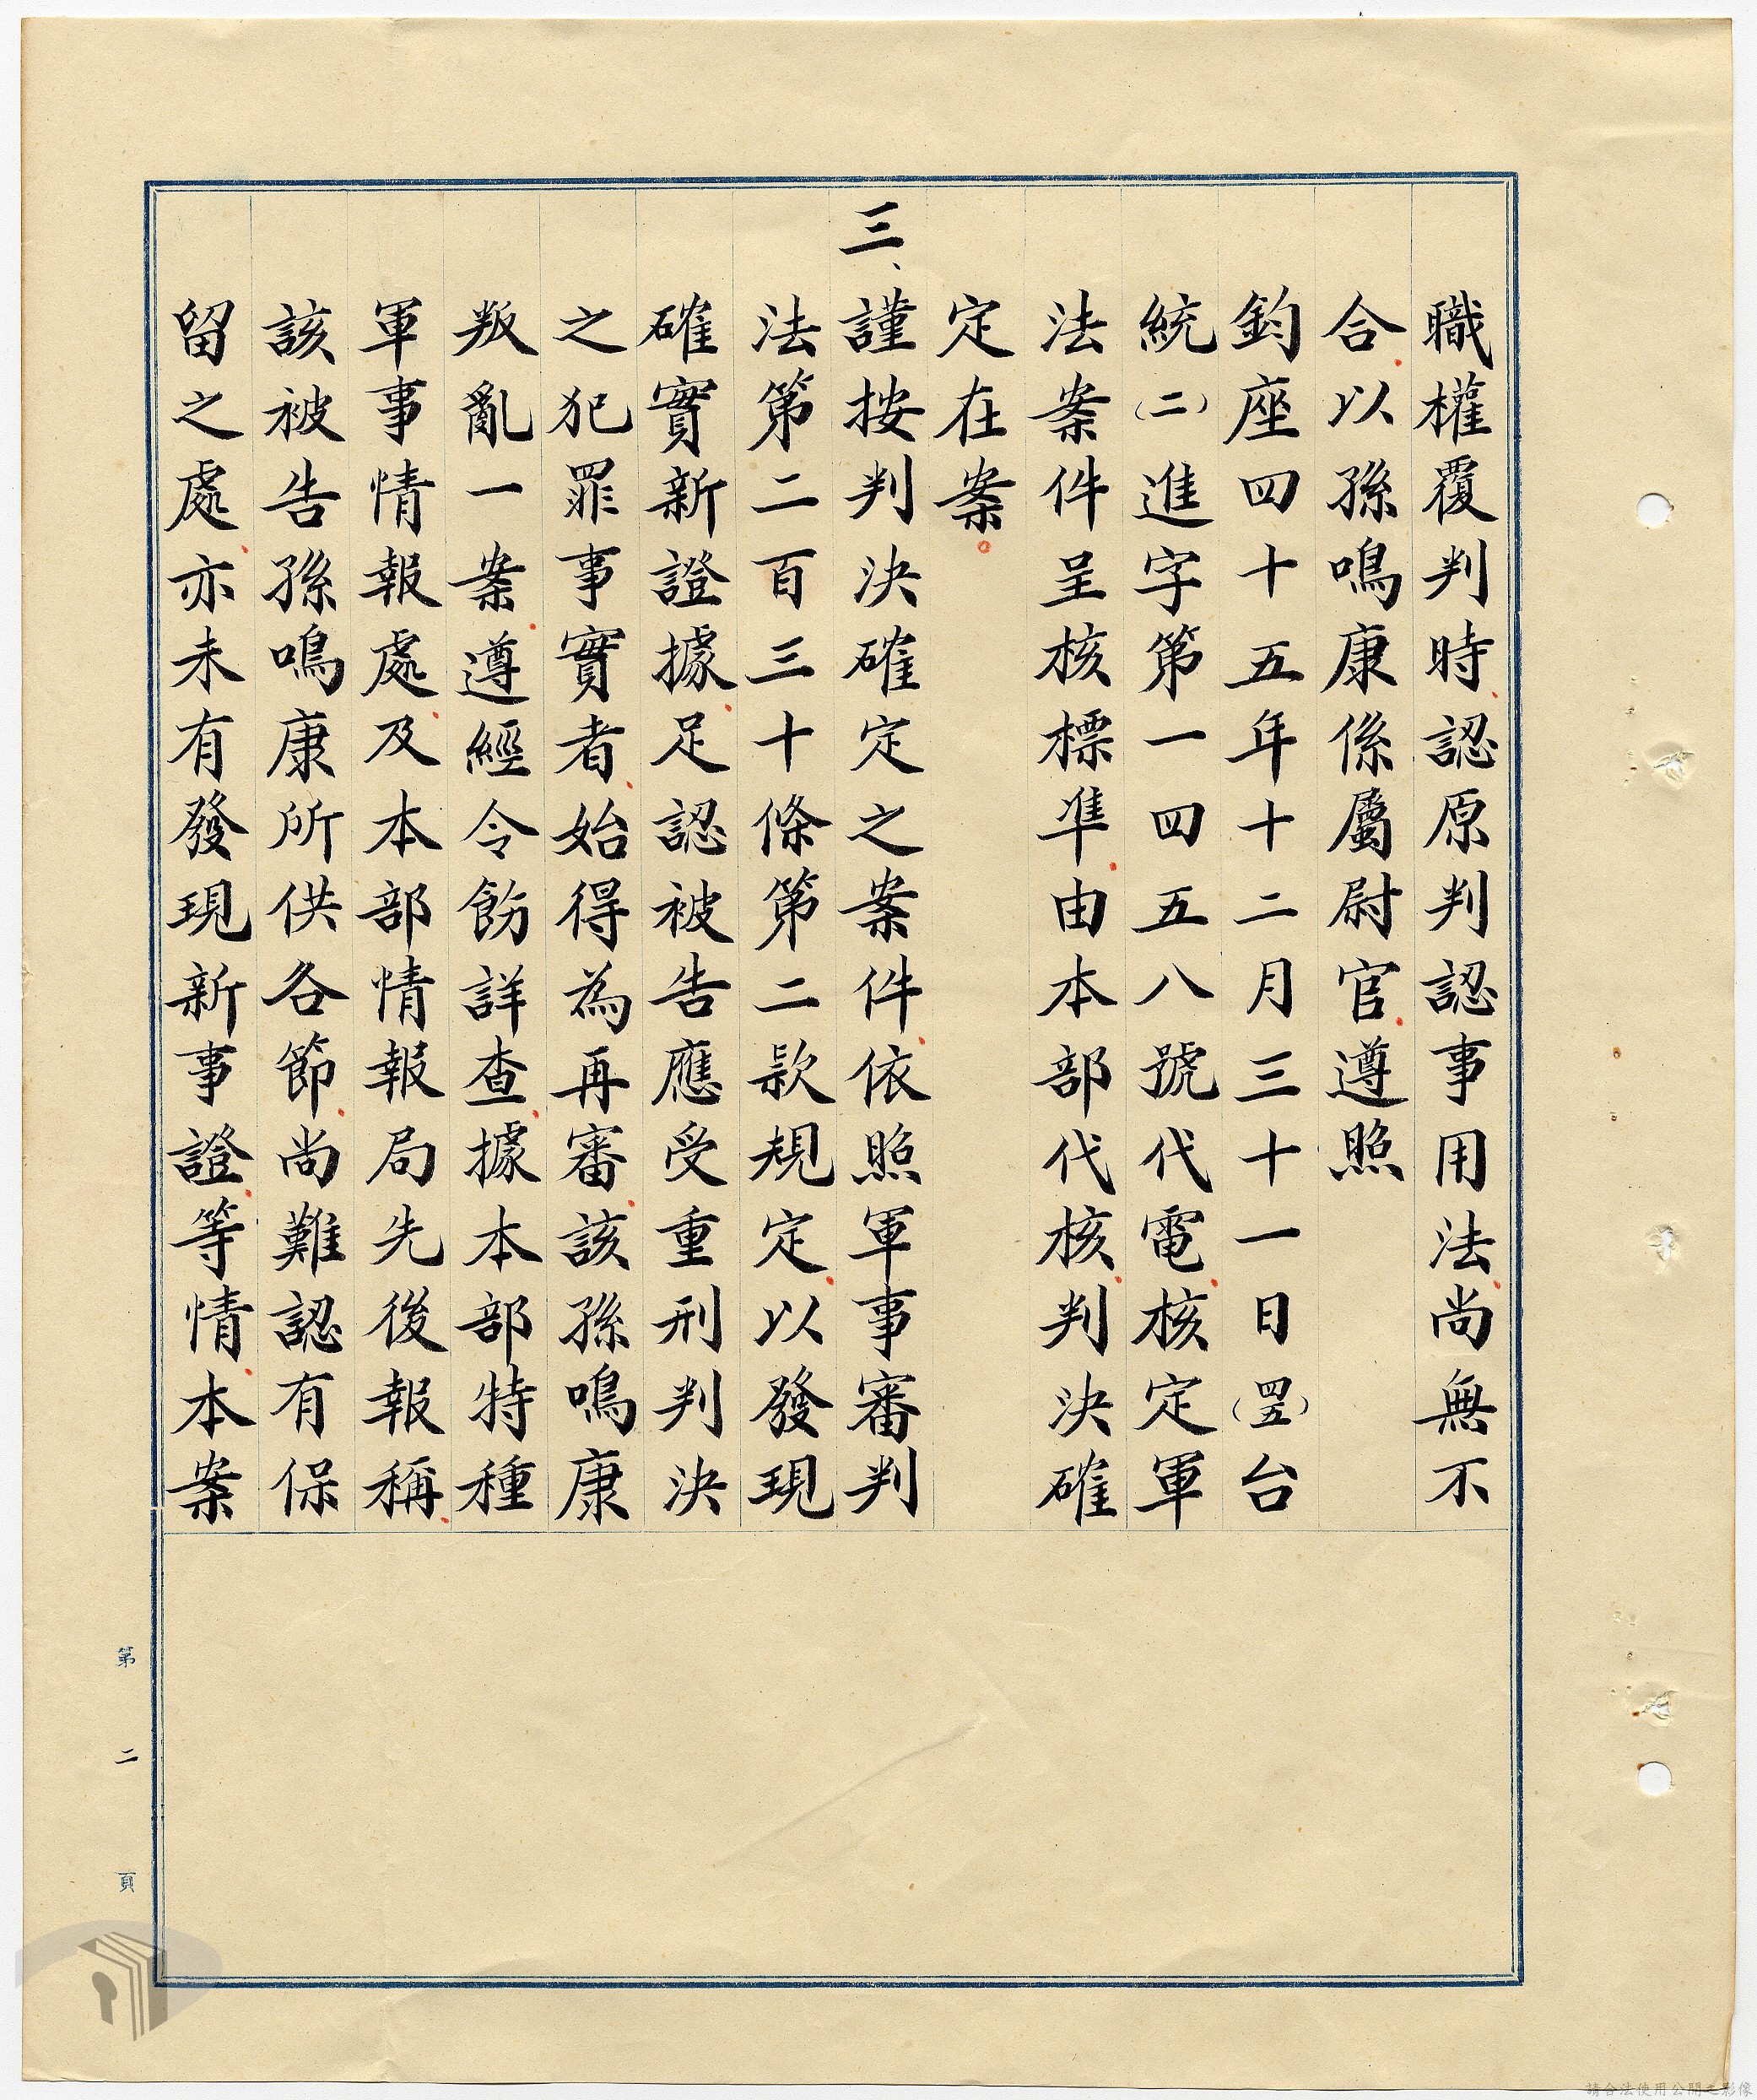 職權覆判時、認原判認事用法、尚無不
合、以孫鳴康係屬尉官、遵照
鈞座四十五年十二月三十一日(四五)台
統(二)進字第一四五八號代電、核定軍
法案件呈核標準、由本部代核、判決確
定在案。
三、謹按判決確定之案件、依照軍事審判
法第二百三十條第二款規定、以發現
確實新證據、足認被告應受重刑判決
之犯罪事實者、始得為再審、該孫鳴康
叛亂一案、遵經令飭詳查、據本部特種
軍事情報處、及本部情報局先後報稱、
該被告孫鳴康所供各節、尚難認有保
留之處、亦未有發現新事證、等情、本案
第二頁
請合法使用公開之影像